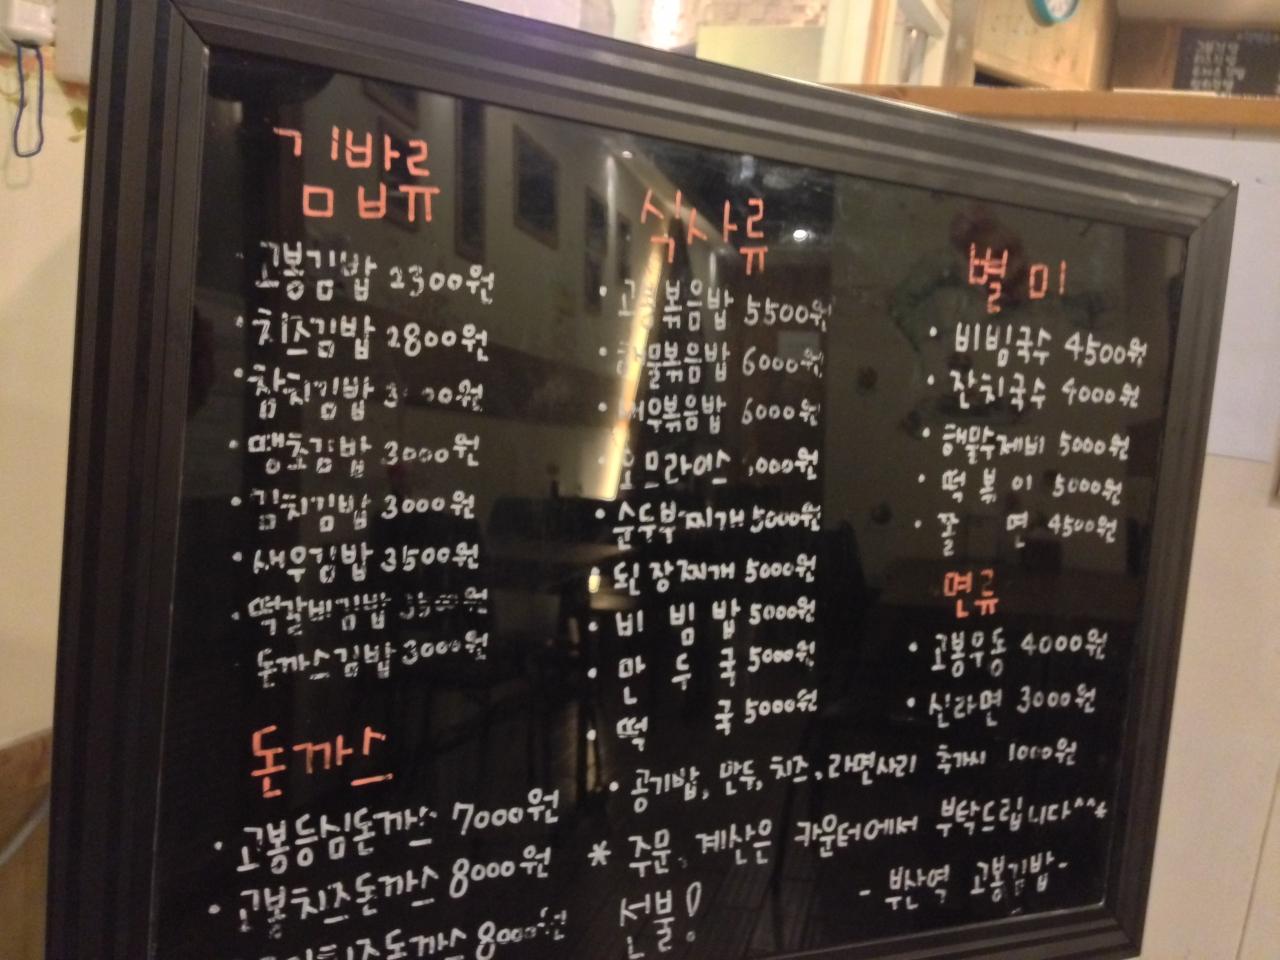 김밥류
고봉김밥 2300원
·치즈김밥 2800원
·참치김밥
·땡초김밥 3000원
·김치김밥 3000원
·새우김밥 3500원
·떡갈비김밥 3500원
돈까스김밥 3000원
돈까스
·고봉등심돈까스 7000원
·고봉치즈돈까스 8000원
치즈돈까스 8000원
식사류
·고봉볶음밥 5500원
·해물볶음밥 6000원
·새우볶음밥 6000원
·오므라이스
·순두부찌개 5000원
·된장찌개 5000원
·비빔밥 5000원
·만두국 5000원
·떡국 5000원
별미
·비빔국수 4500원
·잔치국수 4000원
·해물수제비 5000원
·떡볶이 5000원
·쫄면 4500원
면류
·고봉우동 4000원
·신라면 3000원
·공기밥, 만두, 치즈, 라면사리 추가시 1000원
* 주문, 계산은 카운터에서 부탁드립니다^^*
선불!
- 부산역 고봉김밥 -